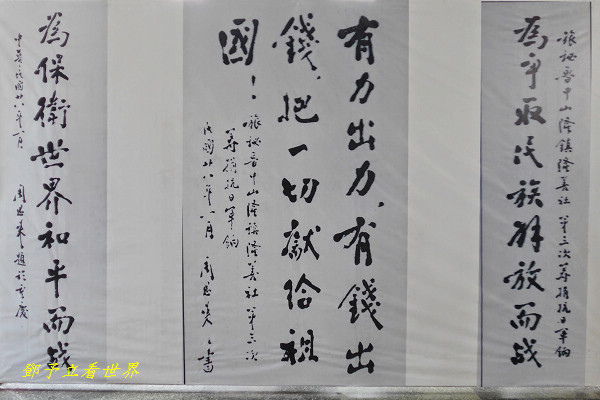 旅祕魯中山隆鎮隆善社第三次籌捐抗日軍餉
為爭取民族解放而战
有力出力，有錢出
錢，把一切獻給祖
國！
旅祕魯中山隆鎮隆善社第三次
籌捐抗日軍餉
民國廿八年八月 周恩來 書
為保衛世界和平而战
中華民國廿八年八月 周恩来題於重慶
鄧予立看世界